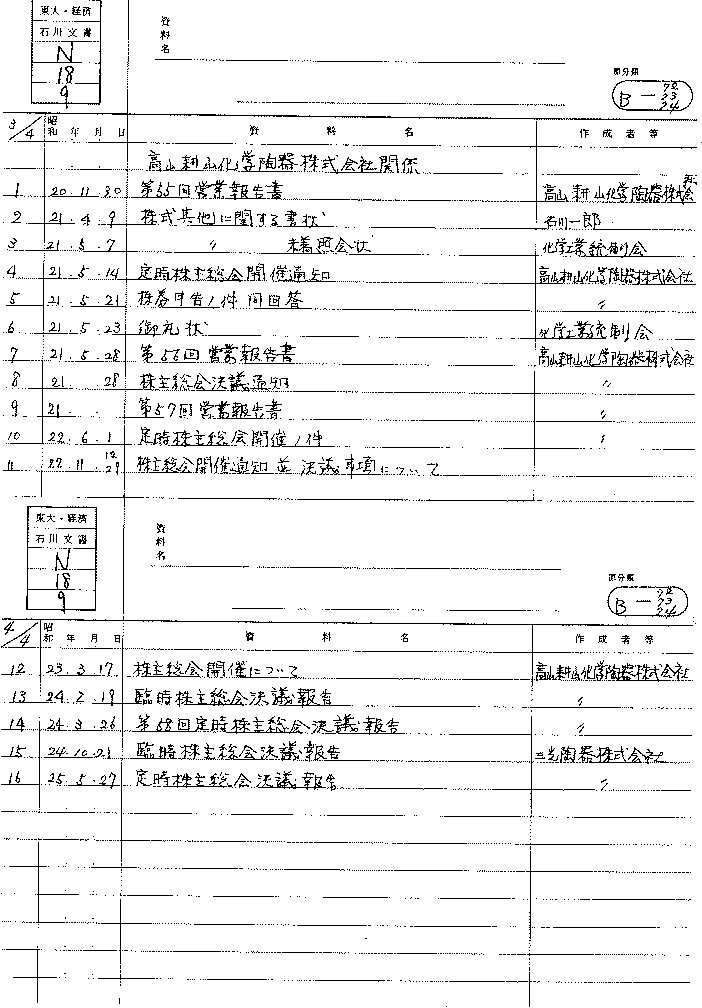 東大・経済
石川文書
N
18
9
資料名
部分類
B-72 73 74
3/4 昭和 年 月 日 資料名 作成者等
高山耕山化学陶器株式会社関係
1 20.11.30 第55回営業報告書 高山耕山化学陶器株式会社
2 21.4.9 株式其他に関する書状 石川一郎
3 21.5.7 〃 株券照会状 化学工業統制会
4 21.5.14 定時株主総会開催通知 高山耕山化学陶器株式会社
5 21.5.21 株券申告ノ件 同回答 〃
6 21.5.23 御礼状 化学工業統制会
7 21.5.28 第56回営業報告書 高山耕山化学陶器株式会社
8 21. 28 株主総会決議通知 〃
9 21. . 第57回営業報告書 〃
10 22.6.1 定時株主総会開催ノ件 〃
11 22.11.12 29 株主総会開催通知並決議事項について
東大・経済
石川文書
N
18
9
資料名
部分類
B-72 73 74
4/4 昭和 年 月 日 資料名 作成者等
12 23.3.17 株主総会開催について 高山耕山化学陶器株式会社
13 24.2.19 臨時株主総会決議報告 〃
14 24.3.26 第58回定時株主総会決議報告 〃
15 24.10.23 臨時株主総会決議報告 二光陶器株式会社
16 25.5.27 定時株主総会決議報告 〃